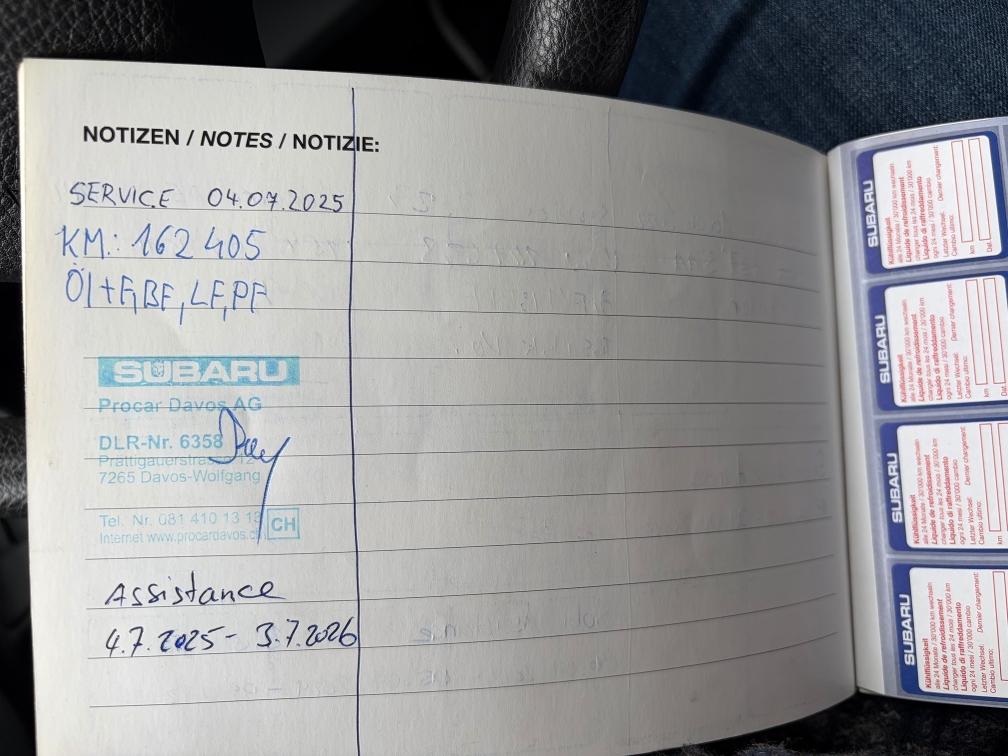 NOTIZEN / NOTES / NOTIZIE:
SERVICE 04.07.2025
KM.: 162 405
Öl+F, BF, LF, PF
SUBARU
Procar Davos AG
DLR-Nr. 6358
12
7265 Davos-Wolfgang
Tel. Nr. 081 410 13 13
CH
Internet www.procardavos.ch
Assistance
4.7.2025 - 3.7.2026
SUBARU
Kühlflüssigkeit
alle 24 Monate / 30'000 km wechseln
Liquide de refroidissement
changer tous les 24 mois / 30'000 km
Liquido di raffreddamento
ogni 24 mesi / 30'000 km cambio
Letzter Wechsel: Dernier changement:
Cambio ultimo:
km
Dat.
SUBARU
Kühlflüssigkeit
alle 24 Monate / 30'000 km wechseln
Liquide de refroidissement
changer tous les 24 mois / 30'000 km
Liquido di raffreddamento
ogni 24 mesi / 30'000 km cambio
Letzter Wechsel: Dernier changement:
Cambio ultimo:
km
Dat.
SUBARU
Kühlflüssigkeit
alle 24 Monate / 30'000 km wechseln
Liquide de refroidissement
changer tous les 24 mois / 30'000 km
Liquido di raffreddamento
ogni 24 mesi / 30'000 km cambio
Letzter Wechsel: Dernier changement:
Cambio ultimo:
km
SUBARU
Kühlflüssigkeit
alle 24 Monate / 30'000 km wechseln
Liquide de refroidissement
changer tous les 24 mois / 30'000 km
Liquido di raffreddamento
ogni 24 mesi / 30'000 km cambio
Letzter Wechsel: Dernier changement:
Cambio ultimo: